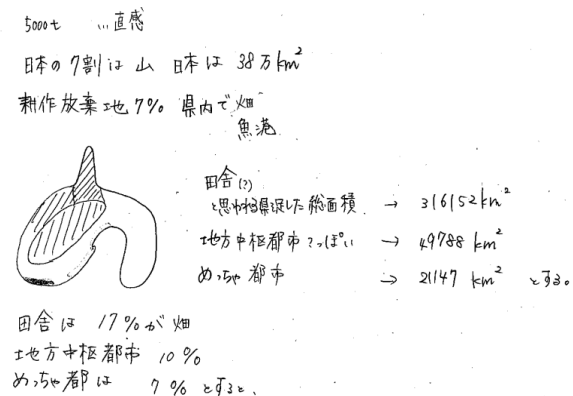 5000t …直感
日本の7割は山 日本は38万km²
耕作放棄地7% 県内で畑
魚港
田舎(?)
と思われる県足した総面積 → 316152km²
地方中枢都市?っぽい → 49788 km²
めっちゃ都市 → 21147 km² とする。
田舎は 17%が畑
地方中枢都市 10%
めっちゃ都は 7% とすると、